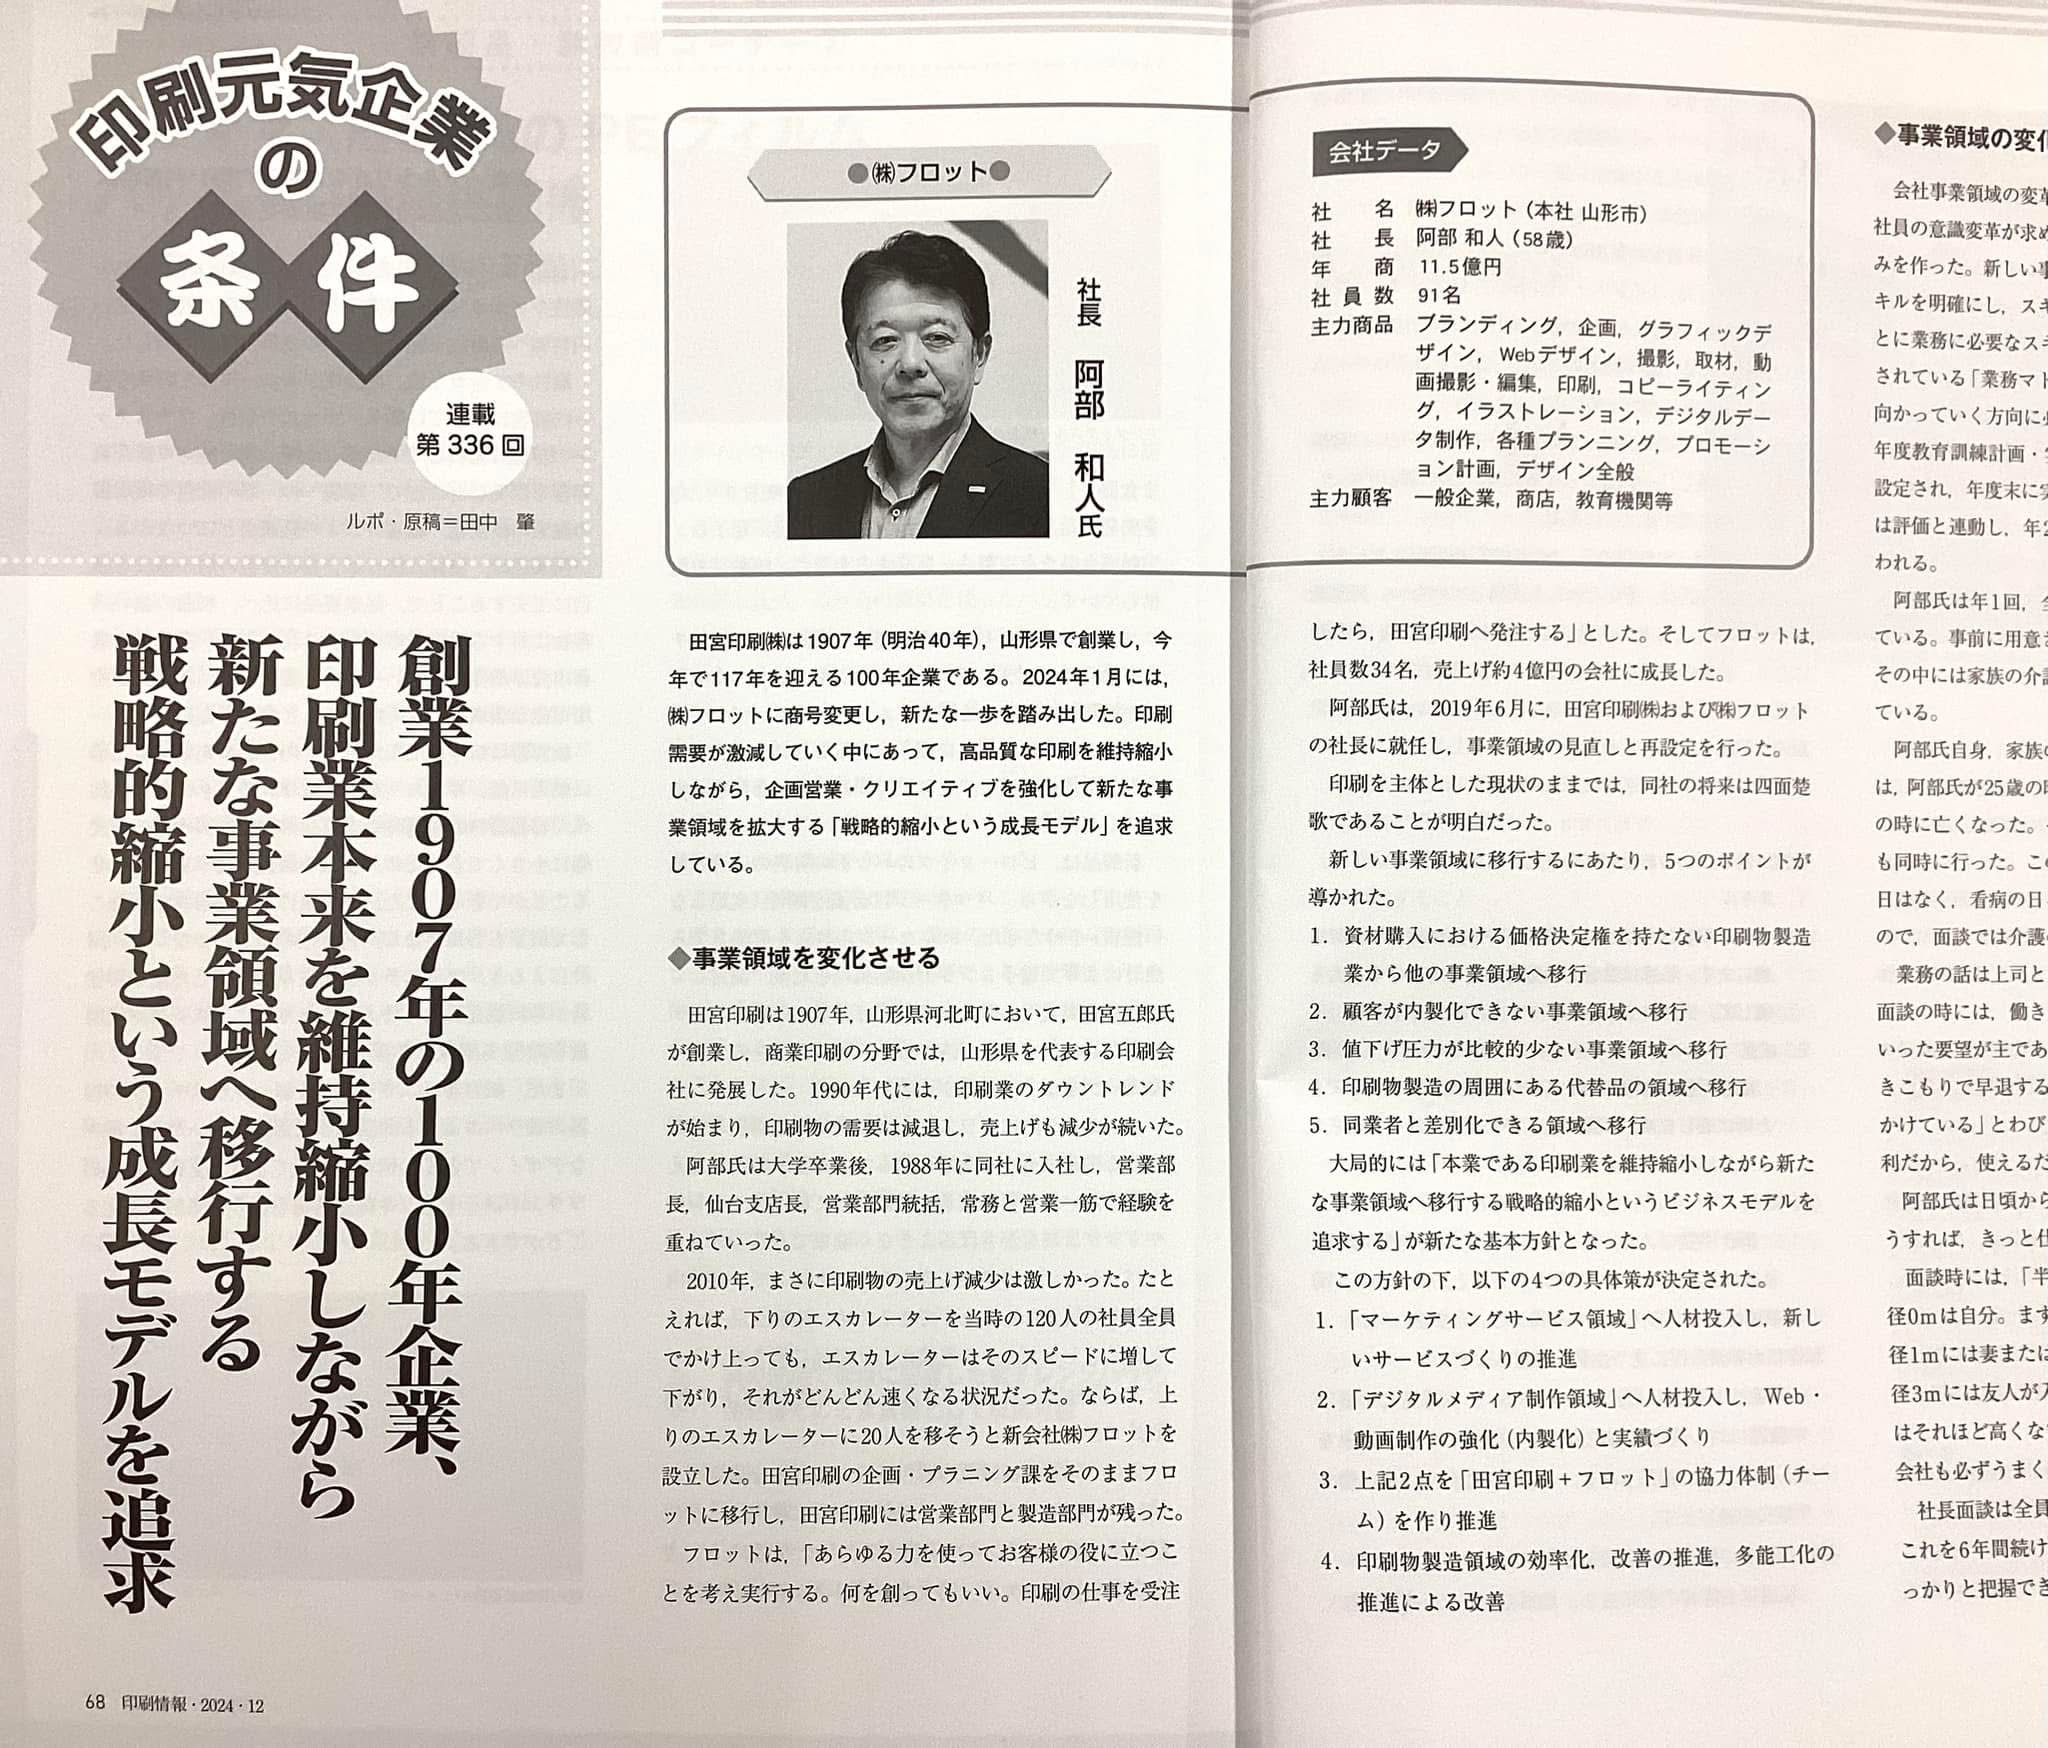 印刷元気企業
の
条件
連載
第336回
ルポ・原稿＝田中　肇
創業1907年の100年企業、
印刷業本来を維持縮小しながら
新たな事業領域へ移行する
戦略的縮小という成長モデルを追求
●㈱フロット●
社長　阿部　和人氏
田宮印刷㈱は1907年（明治40年），山形県で創業し，今
年で117年を迎える100年企業である。2024年1月には，
㈱フロットに商号変更し，新たな一歩を踏み出した。印刷
需要が激減していく中にあって，高品質な印刷を維持縮小
しながら，企画営業・クリエイティブを強化して新たな事
業領域を拡大する「戦略的縮小という成長モデル」を追求
している。
◆事業領域を変化させる
田宮印刷は1907年，山形県河北町において，田宮五郎氏
が創業し，商業印刷の分野では，山形県を代表する印刷会
社に発展した。1990年代には，印刷業のダウントレンド
が始まり，印刷物の需要は減退し，売上げも減少が続いた。
阿部氏は大学卒業後，1988年に同社に入社し，営業部
長，仙台支店長，営業部門統括，常務と営業一筋で経験を
重ねていった。
2010年，まさに印刷物の売上げ減少は激しかった。たと
えれば，下りのエスカレーターを当時の120人の社員全員
でかけ上っても，エスカレーターはそのスピードに増して
下がり，それがどんどん速くなる状況だった。ならば，上
りのエスカレーターに20人を移そうと新会社㈱フロットを
設立した。田宮印刷の企画・プラニング課をそのままフロ
ットに移行し，田宮印刷には営業部門と製造部門が残った。
フロットは，「あらゆる力を使ってお客様の役に立つこ
とを考え実行する。何を創ってもいい。印刷の仕事を受注
68　印刷情報・2024・12
会社データ
社名　㈱フロット（本社 山形市）
社長　阿部 和人（58歳）
年商　11.5億円
社員数　91名
主力商品　ブランディング，企画，グラフィックデ
ザイン，Webデザイン，撮影，取材，動
画撮影・編集，印刷，コピーライティン
グ，イラストレーション，デジタルデー
タ制作，各種プランニング，プロモーシ
ョン計画，デザイン全般
主力顧客　一般企業，商店，教育機関等
したら，田宮印刷へ発注する」とした。そしてフロットは，
社員数34名，売上げ約4億円の会社に成長した。
阿部氏は，2019年6月に，田宮印刷㈱および㈱フロット
の社長に就任し，事業領域の見直しと再設定を行った。
印刷を主体とした現状のままでは，同社の将来は四面楚
歌であることが明白だった。
新しい事業領域に移行するにあたり，5つのポイントが
導かれた。
1．資材購入における価格決定権を持たない印刷物製造
業から他の事業領域へ移行
2．顧客が内製化できない事業領域へ移行
3．値下げ圧力が比較的少ない事業領域へ移行
4．印刷物製造の周囲にある代替品の領域へ移行
5．同業者と差別化できる領域へ移行
大局的には「本業である印刷業を維持縮小しながら新た
な事業領域へ移行する戦略的縮小というビジネスモデルを
追求する」が新たな基本方針となった。
この方針の下，以下の4つの具体策が決定された。
1．「マーケティングサービス領域」へ人材投入し，新し
いサービスづくりの推進
2．「デジタルメディア制作領域」へ人材投入し，Web・
動画制作の強化（内製化）と実績づくり
3．上記2点を「田宮印刷＋フロット」の協力体制（チー
ム）を作り推進
4．印刷物製造領域の効率化，改善の推進，多能工化の
推進による改善
◆事業領域の変化
会社事業領域の変革
社員の意識変革が求め
みを作った。新しい事
キルを明確にし，スキ
とに業務に必要なスキ
されている「業務マト
向かっていく方向に必
年度教育訓練計画・
設定され，年度末に実
は評価と連動し，年2
われる。
阿部氏は年1回，全
ている。事前に用意
その中には家族の介護
ている。
阿部氏自身，家族の
は，阿部氏が25歳の時
の時に亡くなった。
も同時に行った。この
日はなく，看病の日
ので，面談では介護
業務の話は上司と
面談の時には，働き
いった要望が主であ
きこもりで早退する
かけている」とわび
利だから，使えるだ
阿部氏は日頃から
うすれば，きっと仕
面談時には，「半
径0mは自分。まず
径1mには妻または
径3mには友人が入
はそれほど高くな
会社も必ずうまく
社長面談は全員
これを6年間続け
っかりと把握でき